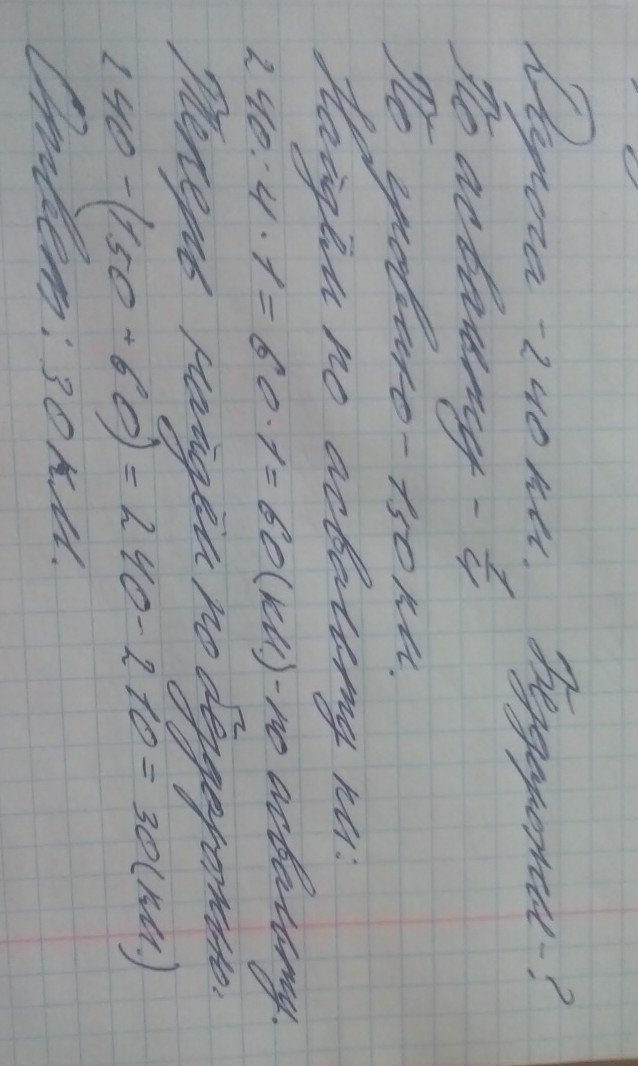 Дорога - 240 км. Бездорожье - ?
По асвальту - 1/4
По гравию - 150 км.
Найдём по асвальту км:
240:4·1=60·1=60(км)-по асвальту.
Теперь найдём по бездорожью:
240-(150+60)=240-210=30(км)
Ответ: 30 км.